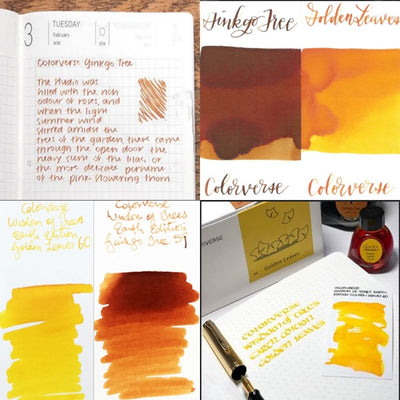 3
TUESDAY
February
Colorverse Ginkgo Tree
The Studio was
filled with the rich
odour of roses, and
when the light
summer wind
stirred amidst the
trees of the garden, there came
through the open door the
heavy scent of the lilac, or
the more delicate perfume
of the pink flowering thorn
Ginkgo Tree
Golden Leaves
Colorverse
Colorverse
Colorverse
Wisdom of Trees
Earth Edition
Golden Leaves 60
Colorverse
Wisdom of Trees
Earth Edition
Ginkgo Tree 59
COLORVERSE
Golden Leaves
COLORVERSE
WISDOM OF TREES
EARTH EDITION
GOLDEN LEAVES
COLORVERSE
WISDOM OF TREES EARTH
EDITION GOLDEN LEAVES 60